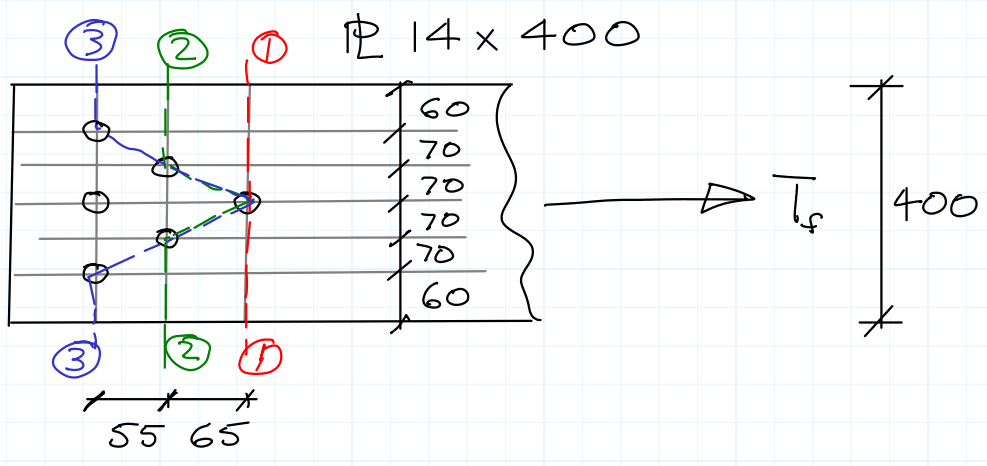 ③ ② ① PL 14 x 400
60
70
70
70
70
60
Tf
400
③ ② ①
55 65